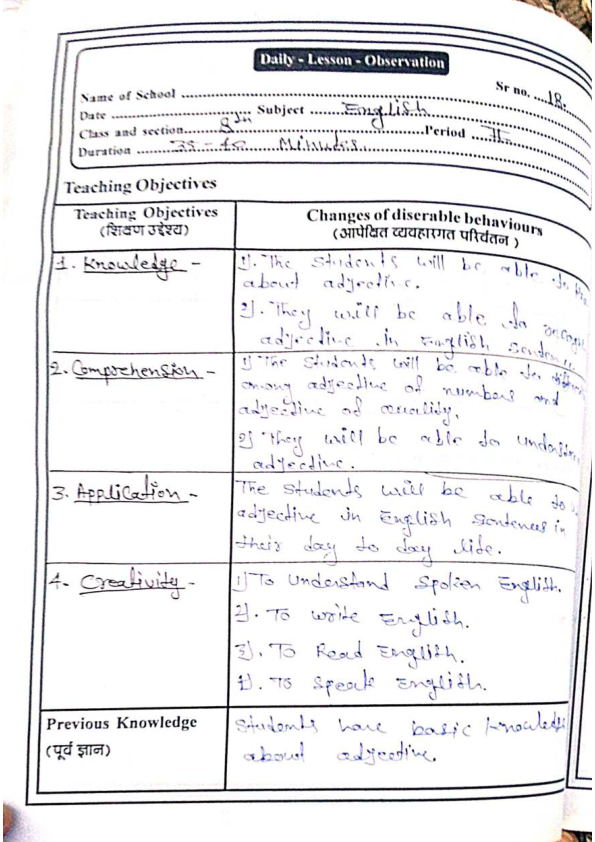 Daily - Lesson - Observation
Sr no. ....18.
Name of School ..........
Date .......... Subject ..........English..........
Class and section..........8th..........Period ....II....
Duration ..........35 - 40.......... Minutes..........
Teaching Objectives
Teaching Objectives
(शिक्षण उद्देश्य)
Changes of diserable behaviours
(आपेक्षित व्यवहारगत परिर्वतन )
1. Knowledge -
1). The Students will be able to
about adjective.
2). They will be able to
adjective in English
2. Comprehension -
1) The Students will be able to
among adjective of numbers and
adjective of quality.
2) They will be able to
adjective.
3. Application -
The Students will be able to
adjective in English Sentences in
their day to day life.
4. Creativity -
1) To Understand Spoken English.
2). To write English.
3). To Read English.
4). To Speak English.
Previous Knowledge
(पूर्व ज्ञान)
Students have basic
about adjective.